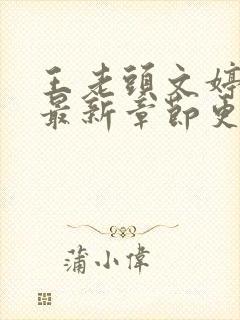 王老頭文婷
最新章節更
蒲小偉